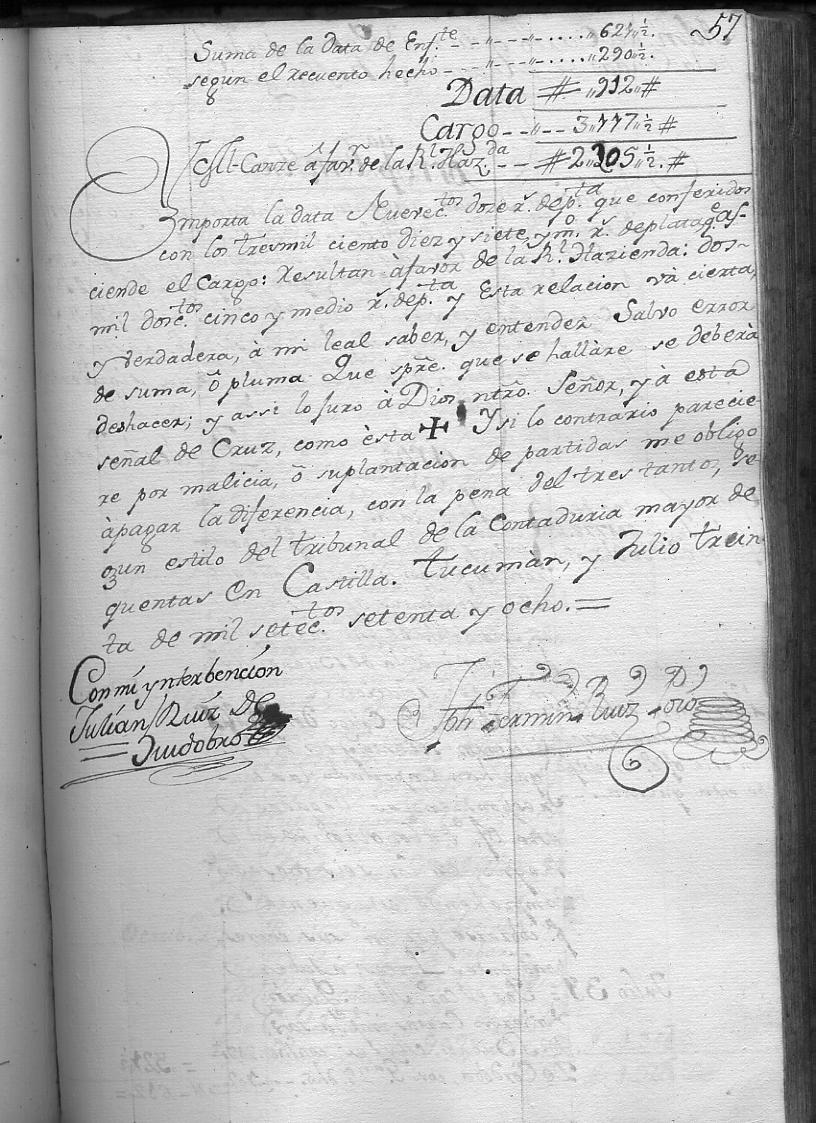 57
Suma de la data de Enf.te - - " - - " - .... " 621 ½.
segun el recuento hecho - - - " - - " - .... " 290 ½.
Data # " 912 " #
Cargo - - " - - 3"117 " ½ #
Alcanze â far. de la Rl. Haz.da - - # 2"205 " ½. #
Importa la data Nuevec.tos doze rs. de p.ta que conferidos
con los tresmil ciento diez y siete, y m.o rs. de plata q.e as-
ciende el Cargo: Resultan â favor de la Rl. Hazienda: dos-
mil dosc.tos cinco y medio rs. de p.ta y Esta relacion và cierta,
y verdadera, à mi leal saber, y entender Salvo error
de suma, ô pluma Que spre. que se hallàre se deberà
deshacer; y assi lo Juro à Dios ntro. Señor, y à esta
señal de Cruz, como èsta ✠ Y si lo contrario parecie-
re por malicia, ô suplantacion de partidas me obligo
à pagar la diferencia, con la pena del tres tanto, se-
gun estilo del tribunal de la Contaduria mayor de
quentas en Castilla. Tucumàn, y Julio trein
ta de mil setec.tos setenta y ocho. =
Con mi ynterbencion
Julián Ruiz De
Huidobro
Fermin Ruiz Poro